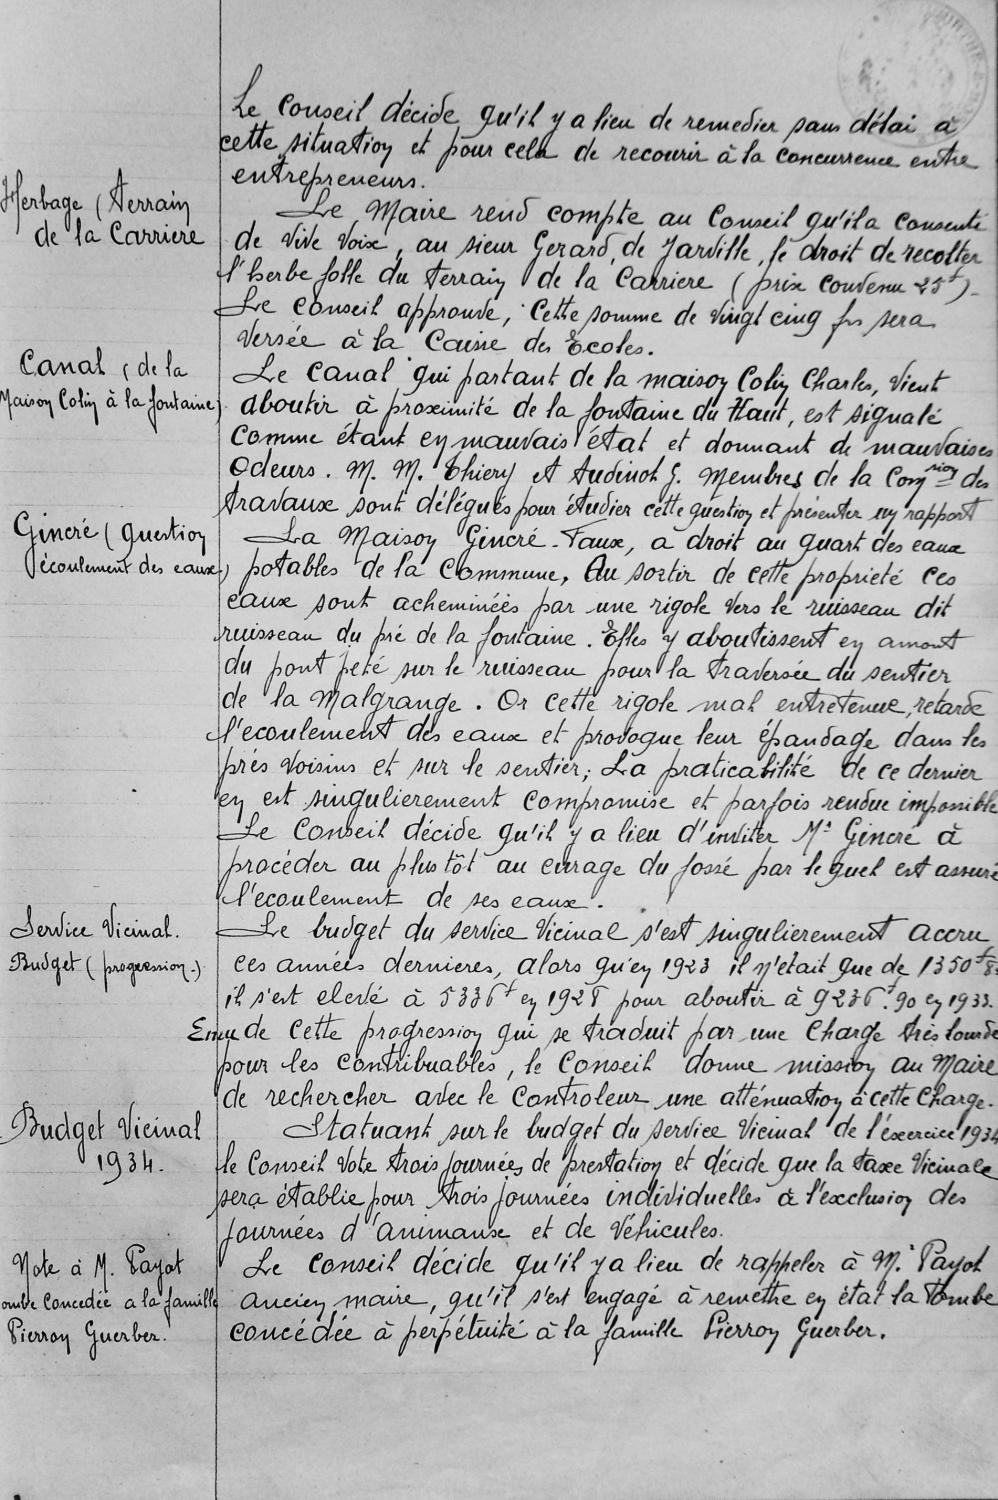 Le Conseil décide qu'il y a lieu de remedier sans délai à
cette situation et pour cela de recourir à la concurrence entre
entrepreneurs.
Herbage (Terrain
de la Carriere
Le Maire rend compte au Conseil qu'il a consenti
de vive voix, au sieur Gerard, de Jarville, le droit de récolter
l'herbe folle du terrain de la Carriere (prix convenu 25f)-
Le Conseil approuve, Cette somme de vingt cinq frs sera
Versée à la Caisse des Ecoles.
Canal (de la
Maison Colin à la fontaine)
Le Canal qui partant de la maison Colin Charles, vient
aboutir à proximité de la fontaine du Haut, est signalé
Comme étant en mauvais état et donnant de mauvaises
Odeurs. M. M. Thiery et Audinot G. Membres de la Comsion des
travaux sont délégués pour étudier cette question et présenter un rapport
Gincré (question
écoulement des eaux)
La Maison Gincré-Faux, a droit au quart des eaux
potables de la Commune. Au sortir de cette proprieté ces
eaux sont acheminéés par une rigole vers le ruisseau dit
ruisseau du pré de la fontaine. Elles y aboutissent en amont
du pont jeté sur le ruisseau pour la traversée du sentier
de la Malgrange. Or cette rigole mal entretenue, retarde
l'écoulement des eaux et provoque leur épandage dans les
prés voisins et sur le sentier; La praticabilité de ce dernier
en est singulierement compromise et parfois rendue impossible
Le Conseil décide qu'il y a lieu d'inviter Mr Gincré à
procéder au plus tôt au curage du fossé par le quel est assuré
l'écoulement de ses eaux.
Service Vicinal.
Budget (progression.)
Le budget du service Vicinal s'est singulierement accru
ces années dernieres, alors qu'en 1923 il n'était que de 1350f
il s'est elevé à 5336f en 1928 pour aboutir à 9236f.90 en 1933.
Emu de cette progression qui se traduit par une Charge très lourde
pour les contribuables, le Conseil donne mission au Maire
de rechercher avec le Controleur une atténuation à cette Charge.
Budget Vicinal
1934.
Statuant sur le budget du service Vicinal de l'éxercice 1934
le Conseil Vote trois journées de prestation et décide que la taxe Vicinale
sera établie pour trois journées individuelles à l'exclusion des
journées d'Animaux et de Véhicules.
Note à M. Payot
ombe Concedée a la famille
Pierron Guerber.
Le Conseil décide qu'il y a lieu de rappeler à Mr Payot
ancien maire, qu'il s'est engagé à remettre en état la Tombe
concédée à perpétuité à la famille Pierron Guerber.